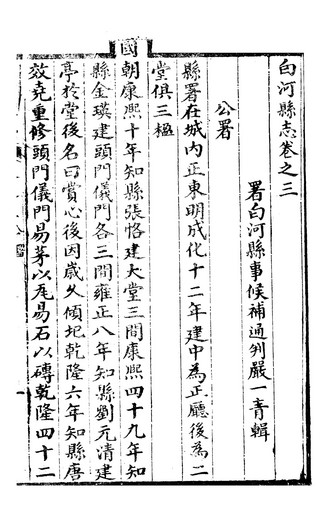 白河縣志卷之三
署白河縣事候補通判嚴一青輯
公署
縣署在城内正東明成化十二年建中為正廳後為二
堂俱三楹
國朝康熙十年知縣張恪建大堂三間康熙四十九年知
縣金瑛建頭門儀門各三間雍正八年知縣劉元清建
亭於堂後名曰賞心後因歲久傾圮乾隆六年知縣唐
效堯重修頭門儀門易茅以瓦易石以磚乾隆四十二